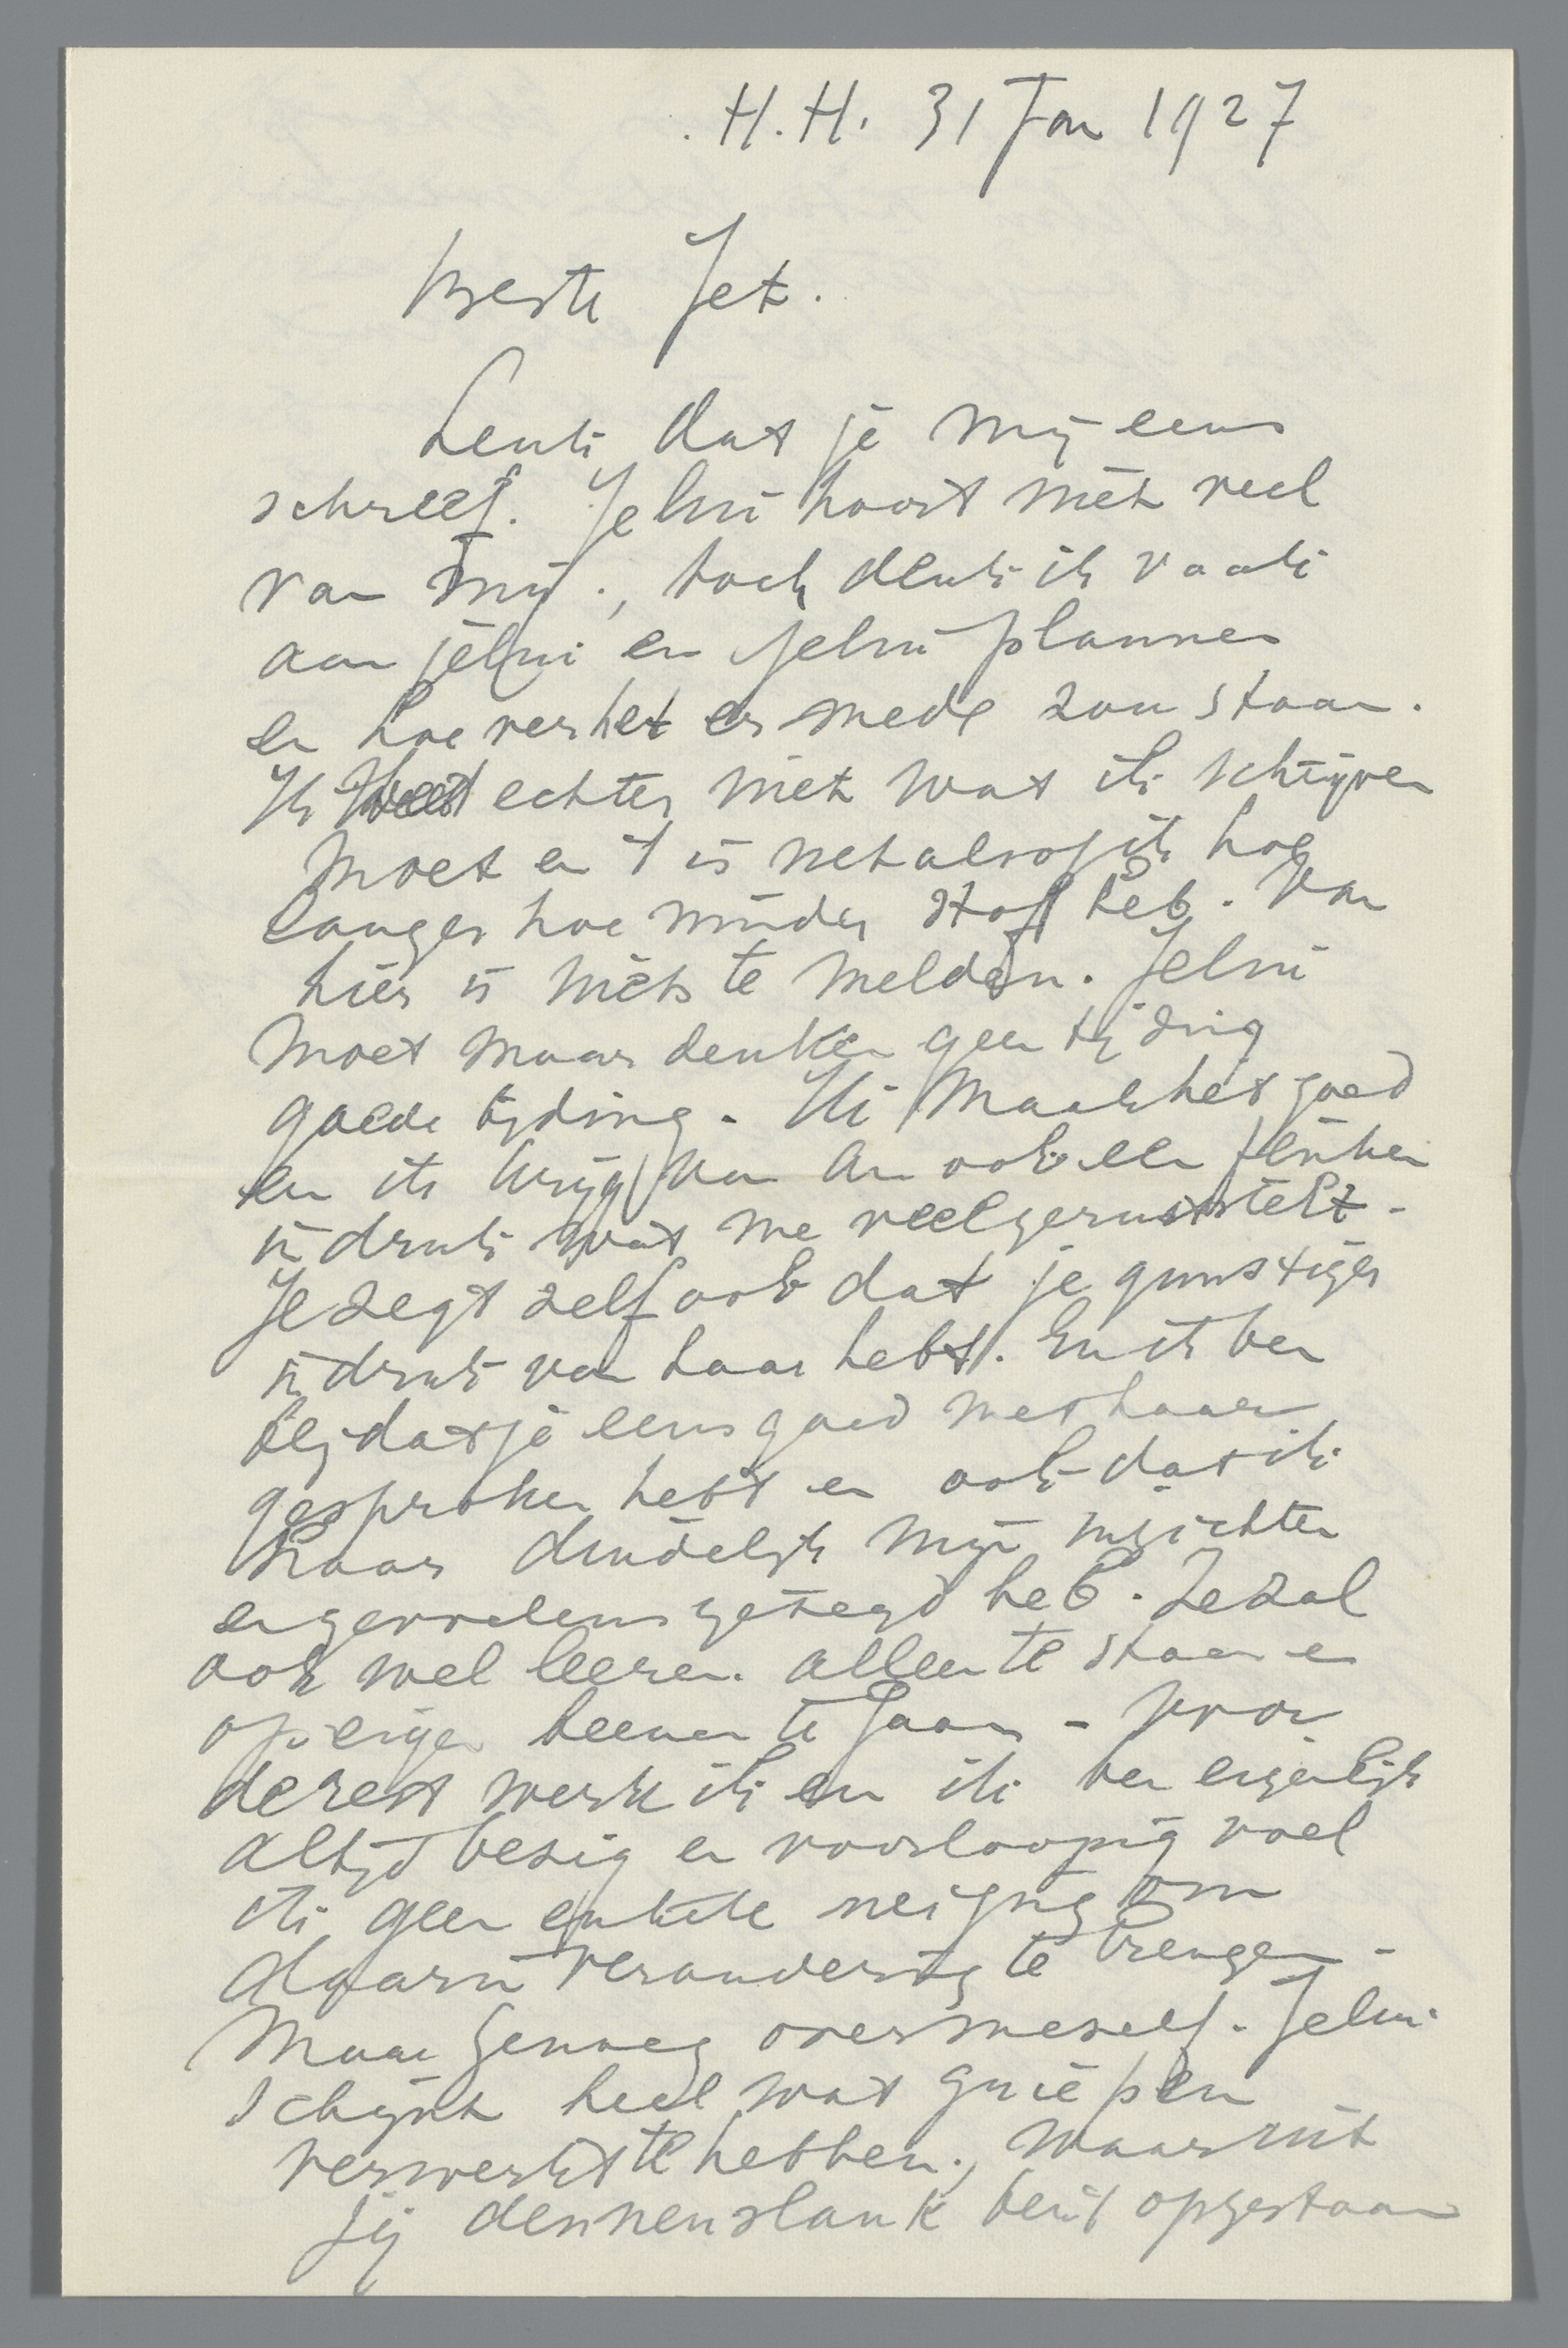 H.H. 31 Jan 1927
Beste Jet.
Leuk dat je mij eens
schreef. Jelui hoort niet veel
van mij., toch denk ik vaak
aan jelui en jelui plannen
en hoe ver het er mede zou staan.
Ik weet echter niet wat ik schrijven
moet en 't is net alsof ik hoe
langer hoe minder stof heb. Van
hier is niets te melden. Jelui
moet maar denken geen tijding
goede tijding. Ik maak het goed
en ik krijg van An ook een flinken
indruk wat me veel geruststelt.
Je zegt zelf ook dat je gunstiger
indruk van haar hebt. En ik ben
blij dat je eens goed met haar
gesproken hebt en ook dat ik
haar duidelijk mijn inzichten
en gevoelens gezegd heb. Ze zal
ook wel leeren alleen te staan en
op eigen beenen te gaan - voor
de rest werk ik en ik ben eigenlijk
altijd bezig en voorloopig voel
ik geen enkele neiging om
daarin verandering te brengen -
Maar genoeg over mezelf. Jelui
schijnt heel wat griepen
verwerkt te hebben., waaruit
jij dennenslank bent opgestaan